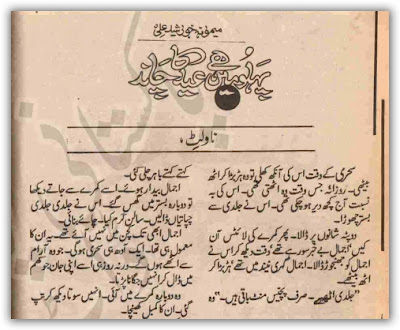 میمونہ خورشید علی
پہلو میں ہے عید کا چاند
ناولٹ
سحری کے وقت اس کی آنکھ کھلی تو وہ ہڑبڑا کر اٹھ
بیٹھی۔ روزانہ جس وقت وہ اٹھتی تھی۔ اس کی بہ
نسبت آج کچھ دیر ہو چکی تھی۔ اس نے جلدی سے
بستر چھوڑا۔
دوپٹہ شانوں پر ڈالا۔ پھر کمرے کی لائٹس آن
کیں "اجمال بے خبر سو رہے تھے وقت دیکھ کر اس نے
اجمال کو جھنجھوڑ ڈالا۔ اجمال گہری نیند میں تھے ہڑبڑا کر
اٹھ بیٹھے۔
"جلدی اٹھیے۔ صرف پچیس منٹ باقی ہیں۔" وہ
کہتے کہتے باہر چلی گئی۔
اجمال بیدار ہوئے۔ اسے کمرے سے جاتے دیکھا
تو دوبارہ بستر میں گھس گئے۔ اس نے جلدی جلدی
چپاتیاں ڈالیں۔ سالن گرم کیا۔ چائے بنائی۔
اجمال ابھی تک کچن میں نہیں آئے تھے۔ یہ ان کا
معمول ہی تھا۔ ایک آدھ ہی سحری ہوگی۔ جو وہ آرام
سے اٹھے ہوں گے۔ ورنہ روز ہی اسے اپنی جان جوکھم
میں ڈال کر انہیں جگانا پڑتا۔
وہ دوبارہ کمرے میں آئی۔ انہیں سوتا دیکھ کر تپ
گئی۔ ان کا کمبل کھینچا۔